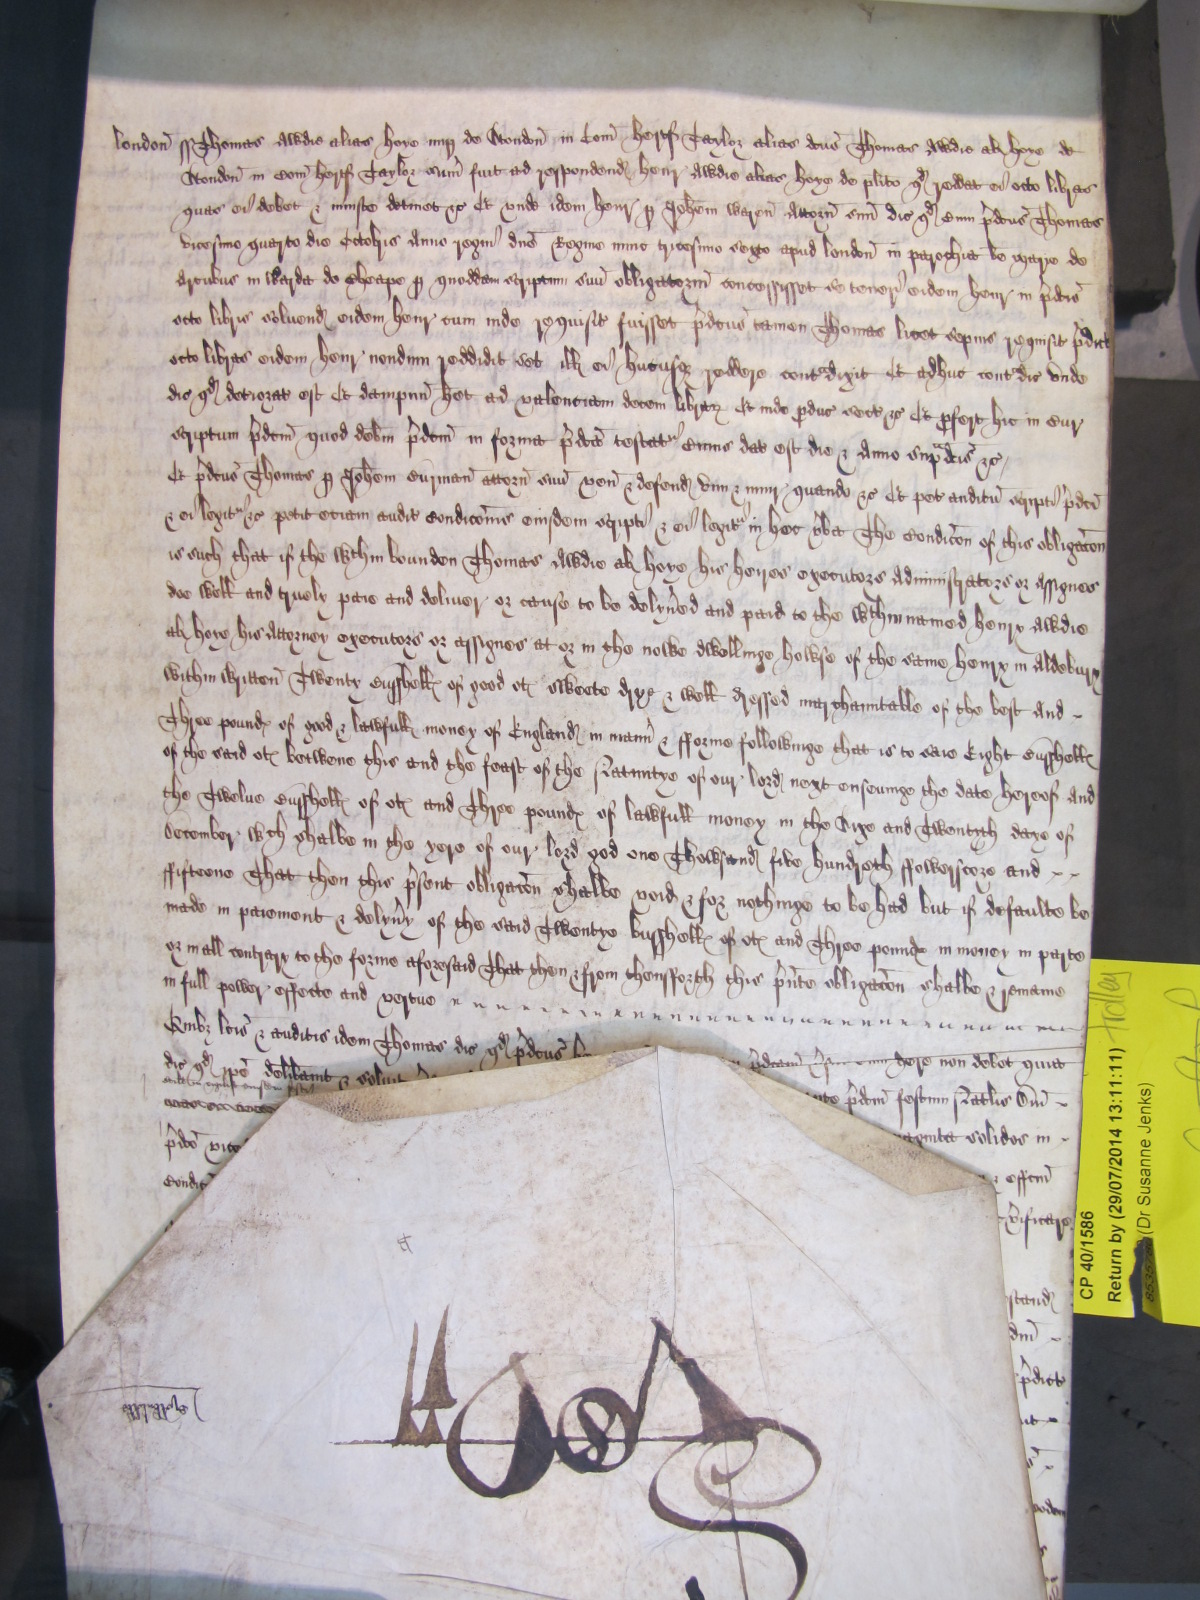 London ss Thomas Awdie alias hoye nup de Wendon in Com hertf Taylor alias dcus Thomas Awdie als hoye de
Wendon in Com hertf Taylor sum fuit ad respondend henr Awdie alias hoye de plito qd reddat ei octo libras
quas ei debet & iniuste detinet &c Et unde idem henr p Johem waren Attorn suu dic qd cum pdcus Thomas
vicesimo quarto die Octobris Anno regni dne Regine nunc tricesimo sexto apud london in parochia be marie de
Arcubus in warda de Cheape p quoddam scriptum suu obligatorm concessisset se teneri eidem henr in pdcis
octo libris solvend eidem henr cum inde requisit fuisset pdcus tamen Thomas licet sepius requisit pdict
octo libras eidem henr nondum reddidit set ill ei hucusq reddere contadixit Et adhuc contadic unde
dic qd deteriorat est Et dampnu het ad valenciam decem librar Et inde producit sect &c Et profert hic in Cur
scriptum pdcm quod debm pdcm in forma pdca testatr Cuius dat est die & Anno supadcis &c
Et pdcus Thomas p Johem Curman attorn suu ven & defend vim & iniur quando &c Et pet auditu scripti pdci
& ei legitr &c petit eciam audit Condicois eiusdem scripti & ei legitr in hec vba The Condicon of this obligacon
is such that if the wthin bounden Thomas Awdie als hoye his heires executors Administrators or Assignes
doe well and truely paie and deliver or cause to be delyved and paid to the wthin named henry Awdie
als hoye his Attorney executors or assignes at or in the nowe dwellinge howse of the same henry in Aldebury
within written Twenty Busshells of good ots sweete drye & well dressed marchauntable of the best And
Three pounds of good & lawfull money of England in mann & fforme followinge that is to saie Eight Busshells
of the said ots betwene this and the feast of the Natiuitye of our lord next ensewinge the date hereof And
the Twelue Busshells of ots and Three pounds of lawfull money in the Sixe and Twentyth daye of
December wch shalbe in the yere of our lord god one Thowsand five hundreth ffowerscore and
ffifteene That then this psent obligacon shalbe void & for nothinge to be had but if defaulte be
made in paiement & delyvy of the said Twentye busshells of ots and Three pounds in money in parte
or in all contrary to the forme aforesaid That then & from thensfforth this pnte obligacon shalbe & remaine
in full power effecte and vertue
Quibz lcis & auditis idem Thomas dic qd pdcus pdcam dere non debet quia
dic qd ipe deliberavit & solvit pdcm festum Natlis Dni
pdco solidos in
Condic & effcm
vificare
stand
dni
pdict
CP 40/1586
Return by (29/07/2014 13:11:11)
(Dr Susanne Jenks)
trolley